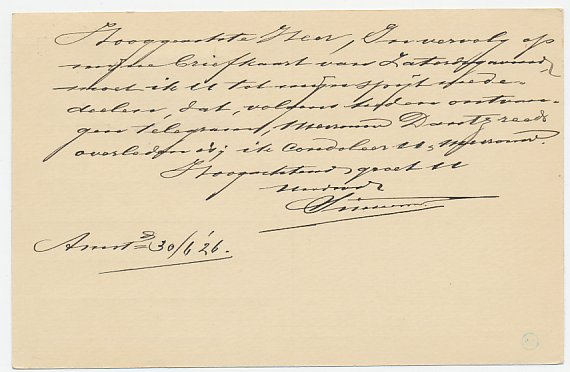 Hooggeachte Heer, In vervolg op
mijne briefkaart van Zaterdagavond,
moet ik U tot mijn spijt mede-
deelen, dat, volgens heden ontvan-
gen telegram, Mevrouw Dantz reeds
overleden is; ik condoleer U en Mevrouw.
Hoogachtend groet U
Amstd 30/6 '26.